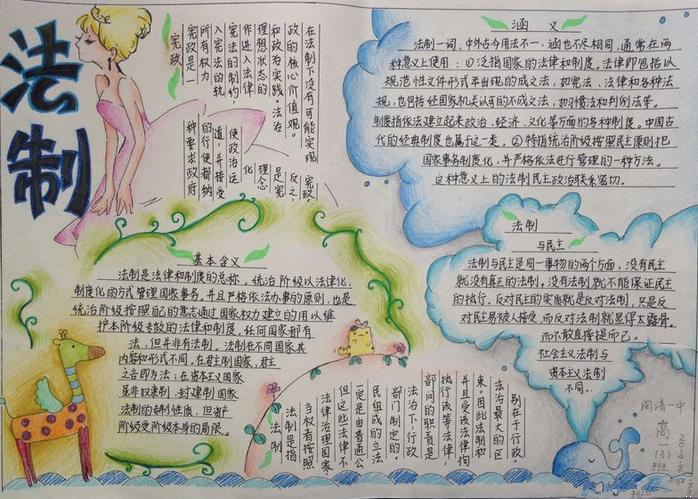 法制
宪政
宪政是一
种要求政府
所有权力
的行使都纳
入宪法的轨
道，并接受
宪法的制约，
使政治运
作进入法律
化
理想状态的
理念
和政为实践。法治
是宪
政的核心价值观。
反之，
在法制下没有可能实现
宪政
涵 义
法制一词，中外古今用法不一，涵也不尽相同，通常在两
种意义上使用：①泛指国家的法律和制度。法律即包括以
规范性文件形式出现的成文法，如宪法、法律和各种法
规，也包括经国家机关认可的不成文法，如习惯法和判例法等。
制度指依法建立起来政治、经济、文化等方面的各种制度。中国古
代的经典制度也属于这一类。②特指统治阶级按照民主原则把
国家事务制度化，并严格依法进行管理的一种方法。
这种意义上的法制民主政治联系密切。
法制
与民主
法制与民主是同一事物的两个方面，没有民主
就没有真正的法制，没有法制就不能保证民主
的执行，反对民主的实质就是反对法制，只是反
对民主易被人接受，而反对法制就显得太露骨。
而不敢直接提而已。
社会主义法制与
资本主义法制
不同。
基本含义
法制是法律和制度的总称，统治阶级以法律化、
制度化的方式管理国家事务，并且严格依法办事的原则，也是
统治阶级按照自己的意志通过国家权力建立的用以维
护本阶级专政的法律和制度，任何国家都有
法，但并非有法制。法制在不同国家其
内容和形式不同，在君主制国家，君主
之言即为法；在资本主义国家
虽非权建制，封建制国家
法制的专制性质，但资产
阶级受阶级本身的局限。
法制
法制是指
当权者按照
法律治理国家
但这些法律不
一定是由普通公
民组成的立法
部门制定的。
法治下，行政
部门的职责是
执行该等法律，
并且受该法律拘
束，用此法制和
法治最大的区
别在于行政。
闽清一中
高一(3)
班